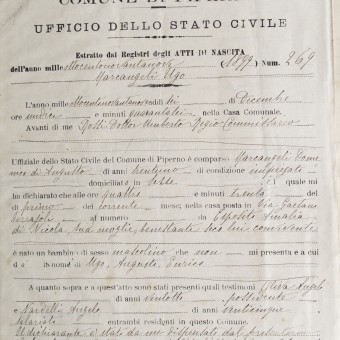 COMUNE DI PIPERNO
UFFICIO DELLO STATO CIVILE
Estratto dai Registri degli ATTI DI NASCITA
dell'anno mille (1899) Num. 269
Marcangeli Ugo
L'anno mille addì sei di Dicembre
ore undici e minuti quaranta nella Casa Comunale.
Avanti di me Dottor Umberto Regio Commissario
Uffiziale dello Stato Civile del Comune di Piperno è comparso Marcangeli
di Augusto di anni trentuno di condizione impiegato
domiciliato in Sesse il quale mi
ha dichiarato che alle ore quattro e minuti trenta del
dì primo del corrente mese, nella casa posta in Via Gaetano
al numero da Esposito Amalia
di Nicola sua moglie, benestante seco lui convivente
è nato un bambino di sesso mascolino che non mi presenta e a cui
dà i nomi di Ugo, Augusto, Enrico
A quanto sopra e a quest'atto sono stati presenti quali testimoni
di anni ventotto possidente
e Nardelli Angelo di anni venticinque
entrambi residenti in questo Comune.
Il dichiarante è stato da me dispensato dal presentarmi